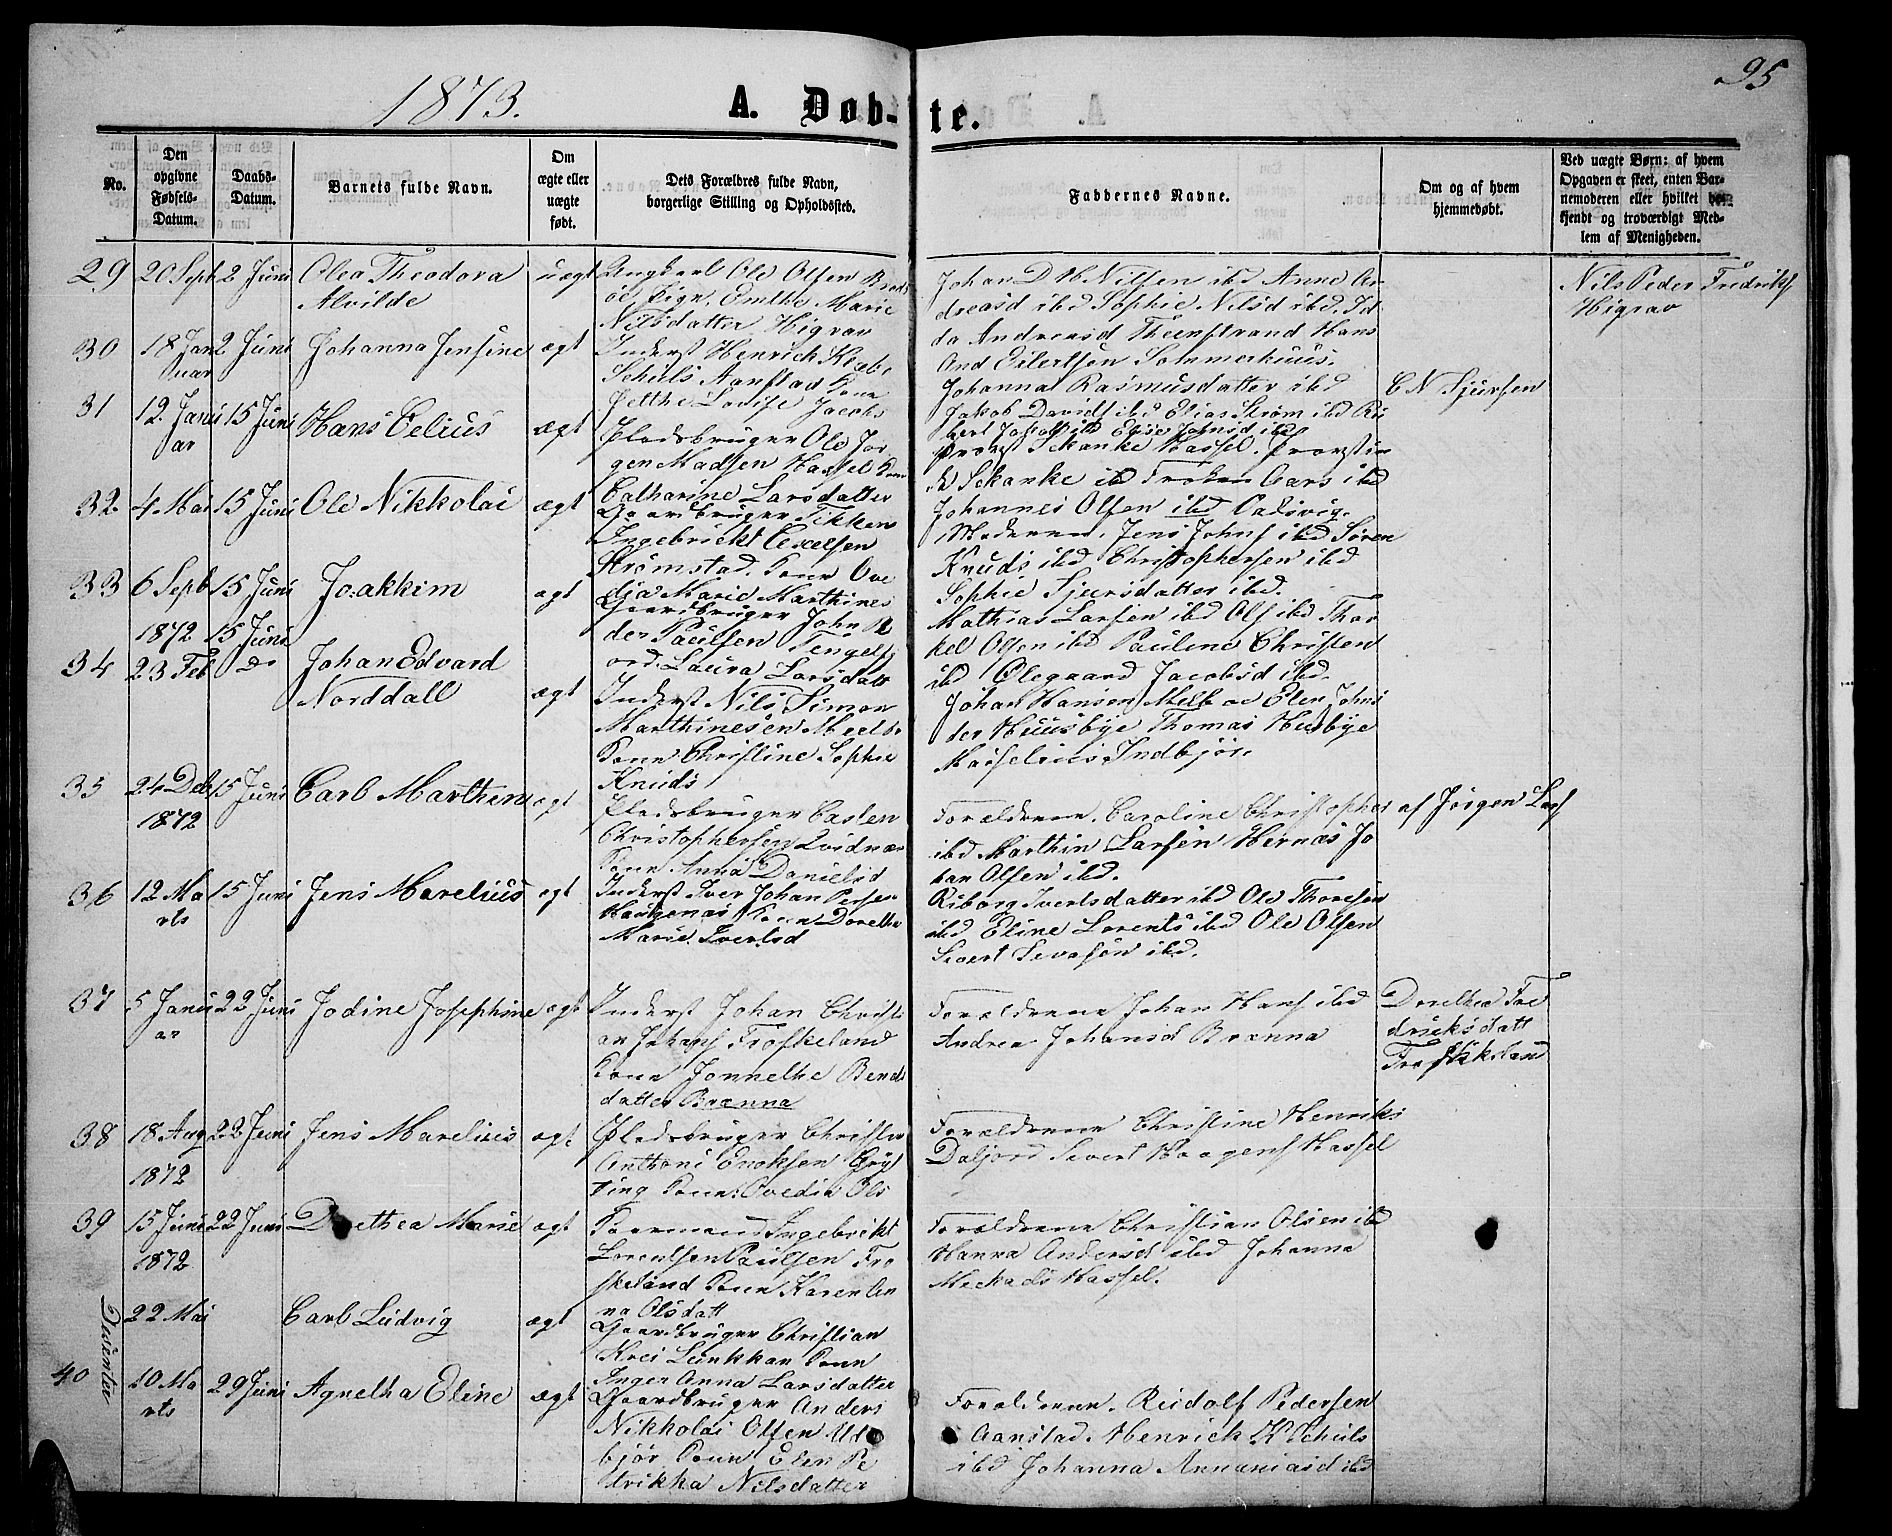 1873.
A. Døb-te.
95
No.
Den opgivne Fødsels-Datum.
Daabs-Datum.
Barnets fulde Navn.
Om ægte eller uægte født.
Dets Forældres fulde Navn, borgerlige Stilling og Opholdssted.
Faddernes Navne.
Om og af hvem hjemmedøbt.
Ved uægte Børn: af hvem Opgaven er skeet, enten Barnemoderen eller hvilket bekjendt og troværdigt Medlem af Menigheden.
29 20 Sept 2 Juni Olea Theodora Alvilde uægt
Ungkarl Ole Olsen
Pige. Emthe Marie
Nilsdatter Higrav
Johan D M Nilsen ibd Anne An
dreasd ibd Sophie Nilsd ibd. Id
da Andreasd Theenstrand Hans
And Eilertsen Sommerhuus.
Nils Peder Fredriks
Higrav
30 18 Jan
uar 2 Juni Johanna Jensine ægt
Inderst Henrich Kræbs
Schuls Aanstad Kone
Jetthe Lovise Jacobs
Johanna Rasmusdatter ibd
Jakob Davids ibd Elias Strøm ibd
bert Josefs ibd Elise Johnsd ibd
C N Sjursen
31 12. Janu
ar 15 Juni Hans Celius ægt
Pladsbruger Ole Jør
gen Madsen Hassel Kone
Catharine Larsdatter
Provst Skanke Hassel. Provstin
d Skanke ibd Frøken Aars ibd
Johannes Olsen ibd
32. 4 Mai 15 Juni Ole Nikkolai ægt
Gaardbruger Tikken
Ingebrickt Excelsen
Strømstad. Kone Ove
dia Marie Marthines
Moderen. Jens Johns ibd Søren
Knuds ibd Christophersen ibd
Sophie Sjursdatter ibd.
33 6 Sept
1872 15 Juni
15 Juni Joakkim ægt
Gaardbruger John P
der Paulsen Tengelf
ord. Laura Larsdatt
Mathias Larsen ibd Ols ibd Thor
kel Olsen ibd Pauline Christen
ibd Olegaard Jacobsd ibd.
34 23 Feb do Johan Edvard
Norddall ægt
Inderst Nils Simon
Marthinesen Meelbo
Kone Christine Sophie
Knuds
Johan Hansen Melbo Elen Johns
der Huusbye Thomas Husbye
Maselius Indbjør.
35 24 Deb
1872 15 Juni Carl Marthin ægt
Pladsbruger Casten
Christophersen Qvidnæs
Kone Anna Danielsd
Forældrene. Caroline Christopher
ibd Marthin Larsen Hernæs Jo
han Olsen ibd.
af Jørgen Lars
36 12 Ma
rts 15 Juni Jens Marelius ægt
Inderst Iver Johan Persen
Haukenæs Kone Dorethe
Marie Ivertsd
Riborg Ivertsdatter ibd Ole Thoresen
ibd Eline Lorents ibd Ole Olsen
Sivert Sivesen ibd.
37 5 Janu
ar 22 Juni Jodine Josephine ægt
Inderst Johan Christi
an Johans Froskeland
Kone Jonnethe Bend
datter Brænna
Forældrene Johan Hans ibd
Andrea Johansd Brænna
Dorethea Fre
dricksdatt
Froskkeland
38 18 Aug
1872 22 Juni Jens Marelius ægt
Pladsbruger Christen
Anthoni Enoksen Gryt
ting Kone: Ovedia Ols
Forældrene Christine Henriks
Dalfjord Sivert Haagens Hassel
39 15 Juni
1872 22 Juni Dorethea Marie ægt
Ingebrikt
Lorentsen Paulsen Fro
skeland Kone Karen An
na Olsdatt
Forældrene Christian Olsen ibd
Hanna Andersd ibd Johanna
Meckads Hassel.
22 Mai Carl Ludvig ægt
Gaardbruger Christian
Krei Lunkkan Kone
Inger Anna Larsdatter
40 10 Ma
rts 29 Juni Agnetha Eline ægt
Gaardbruger Anders
Nikkolai Olsen Ud
bjør Kone Elen Pe
trikka Nilsdatter
Forældrene. Rudolf Pedersen
Aanstad. Henrick K Schuls
ibd Johanna Annaniasd ibd